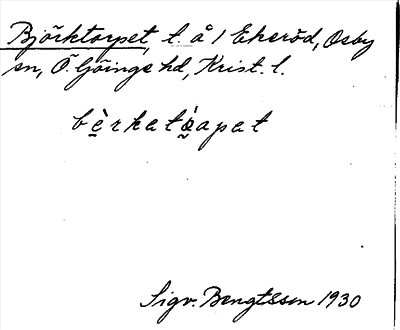 Björktorpet, l. å 1 Ekeröd, Osby
sn, Ö. Göinge hd, Krist. l.
bèrkatàapat
Sigv. Bengtsson 1930